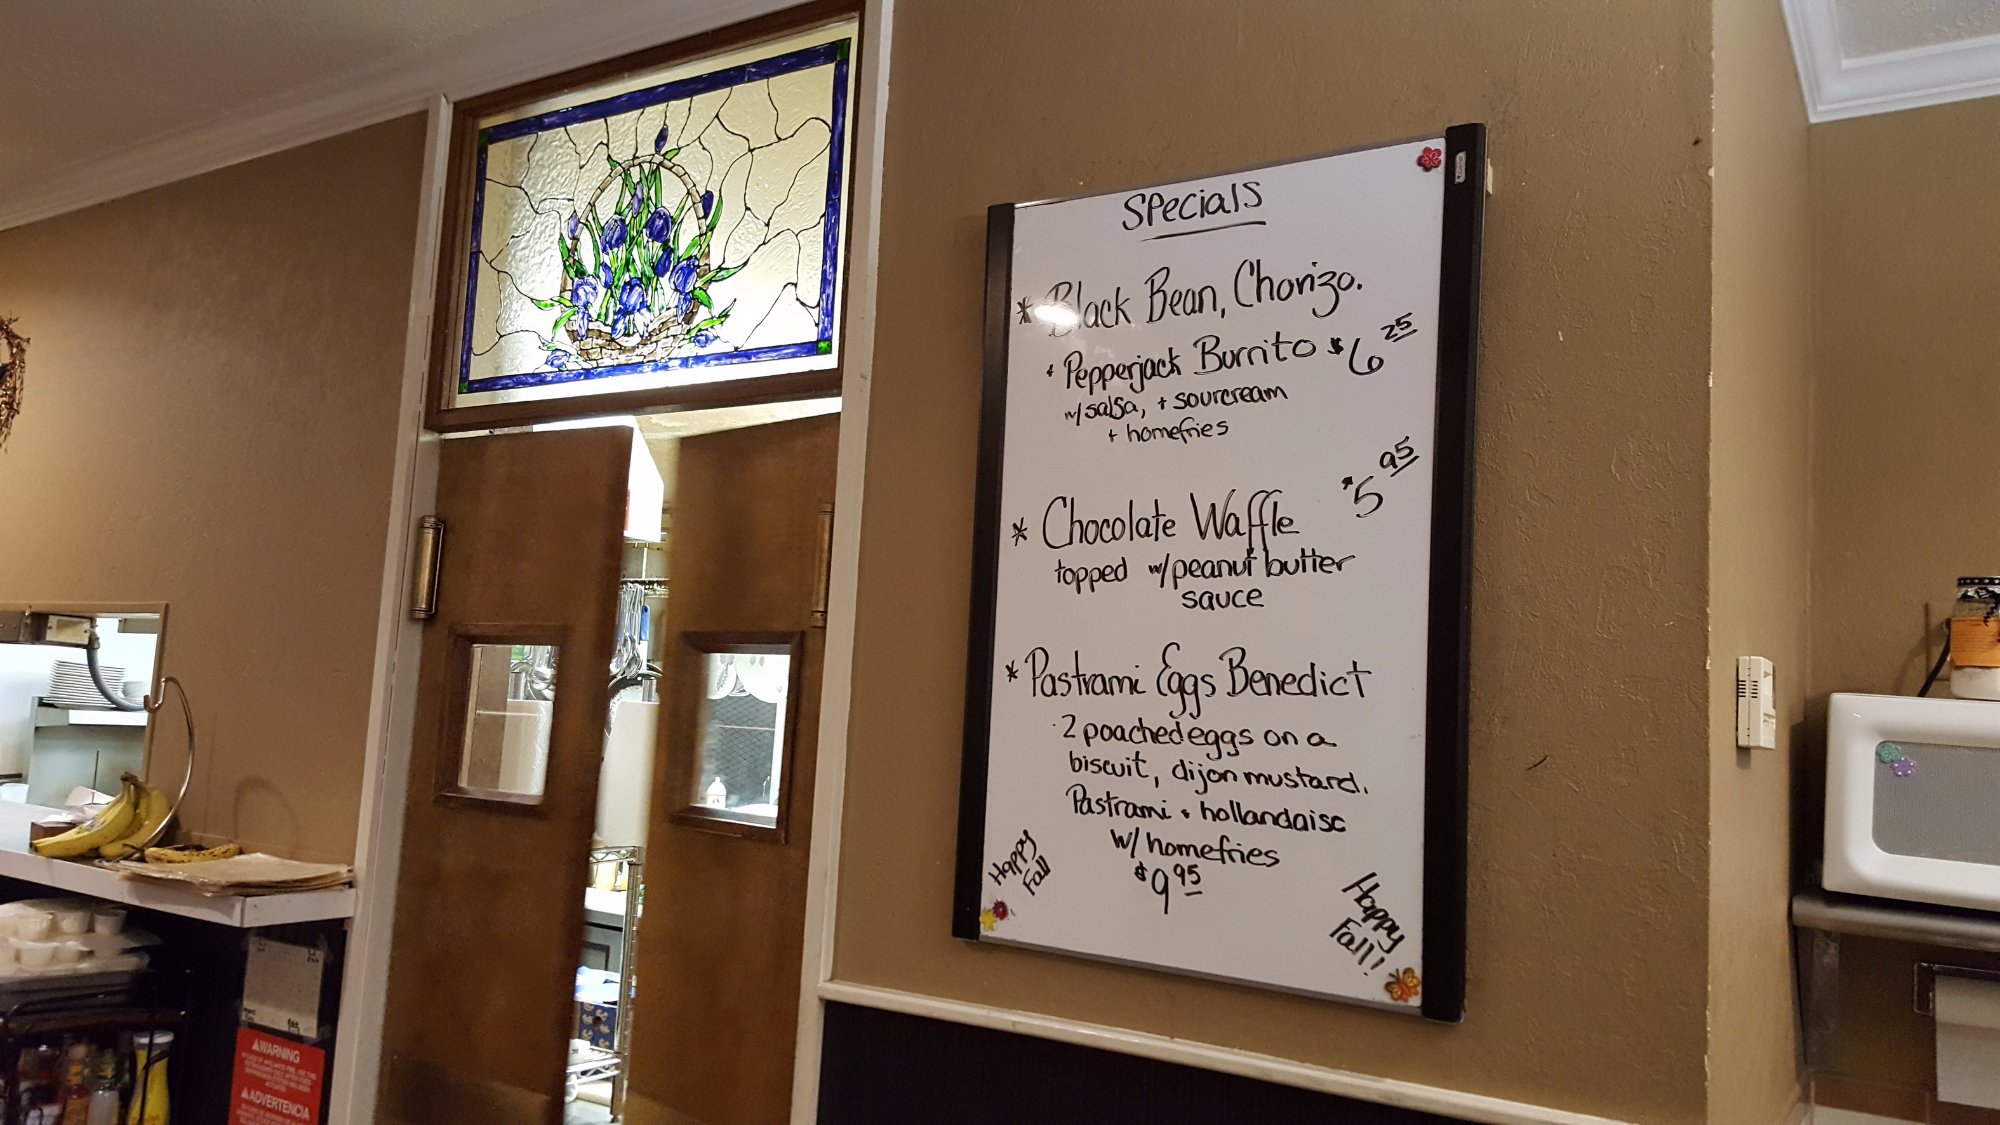 SPecialS
* Black Bean, Chorizo.
+ Pepperjack Burrito $6 25
w/ salsa, + sourcream
+ homefries
$5 95
* Chocolate Waffle
topped w/ peanut butter
sauce
* Pastrami Eggs Benedict
2 poached eggs on a
biscuit, dijon mustard,
Pastrami + hollandaise
w/ homefries
$9 95
Happy
Fall
Happy
Fall!
WARNING
ADVERTENCIA